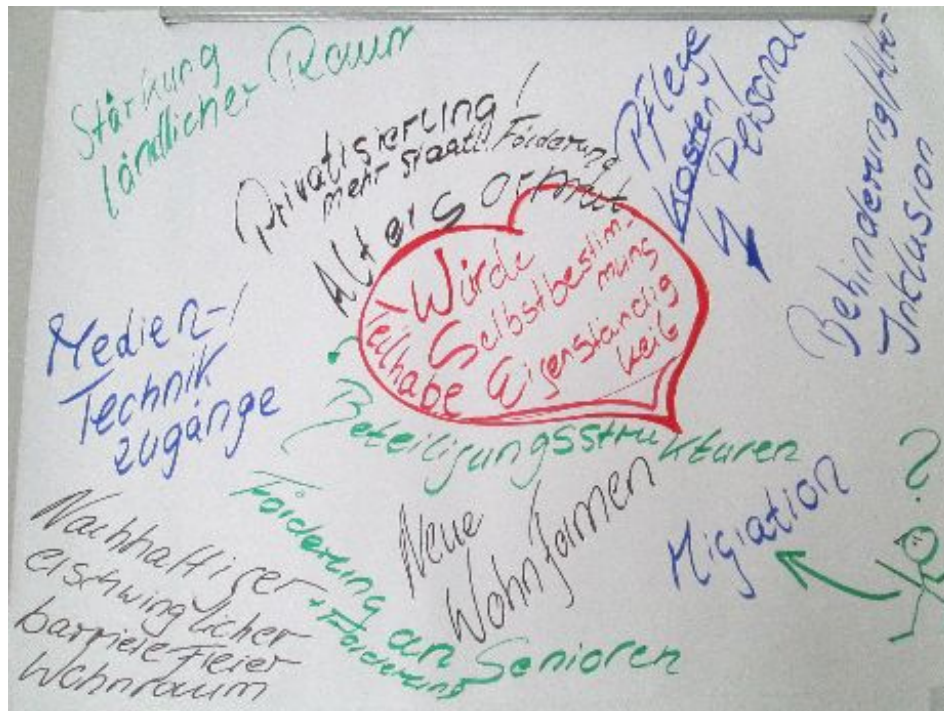 Stärkung
ländlicher Raum
Privatisierung/
mehr staatl. Förderung
Altersarmut
Pflege
kosten/
Personal
Behinderung/
Inklusion
Würde
Selbstbestim-
mung
Teilhabe
Eigenständig
keit
Medien-/
Technik
zugänge
Beteiligungsstrukturen
Förderung an
+ Forderung
Senioren
Neue
Wohnformen
Migration
?
Nachhaltiger
erschwinglicher
barrierefreier
Wohnraum